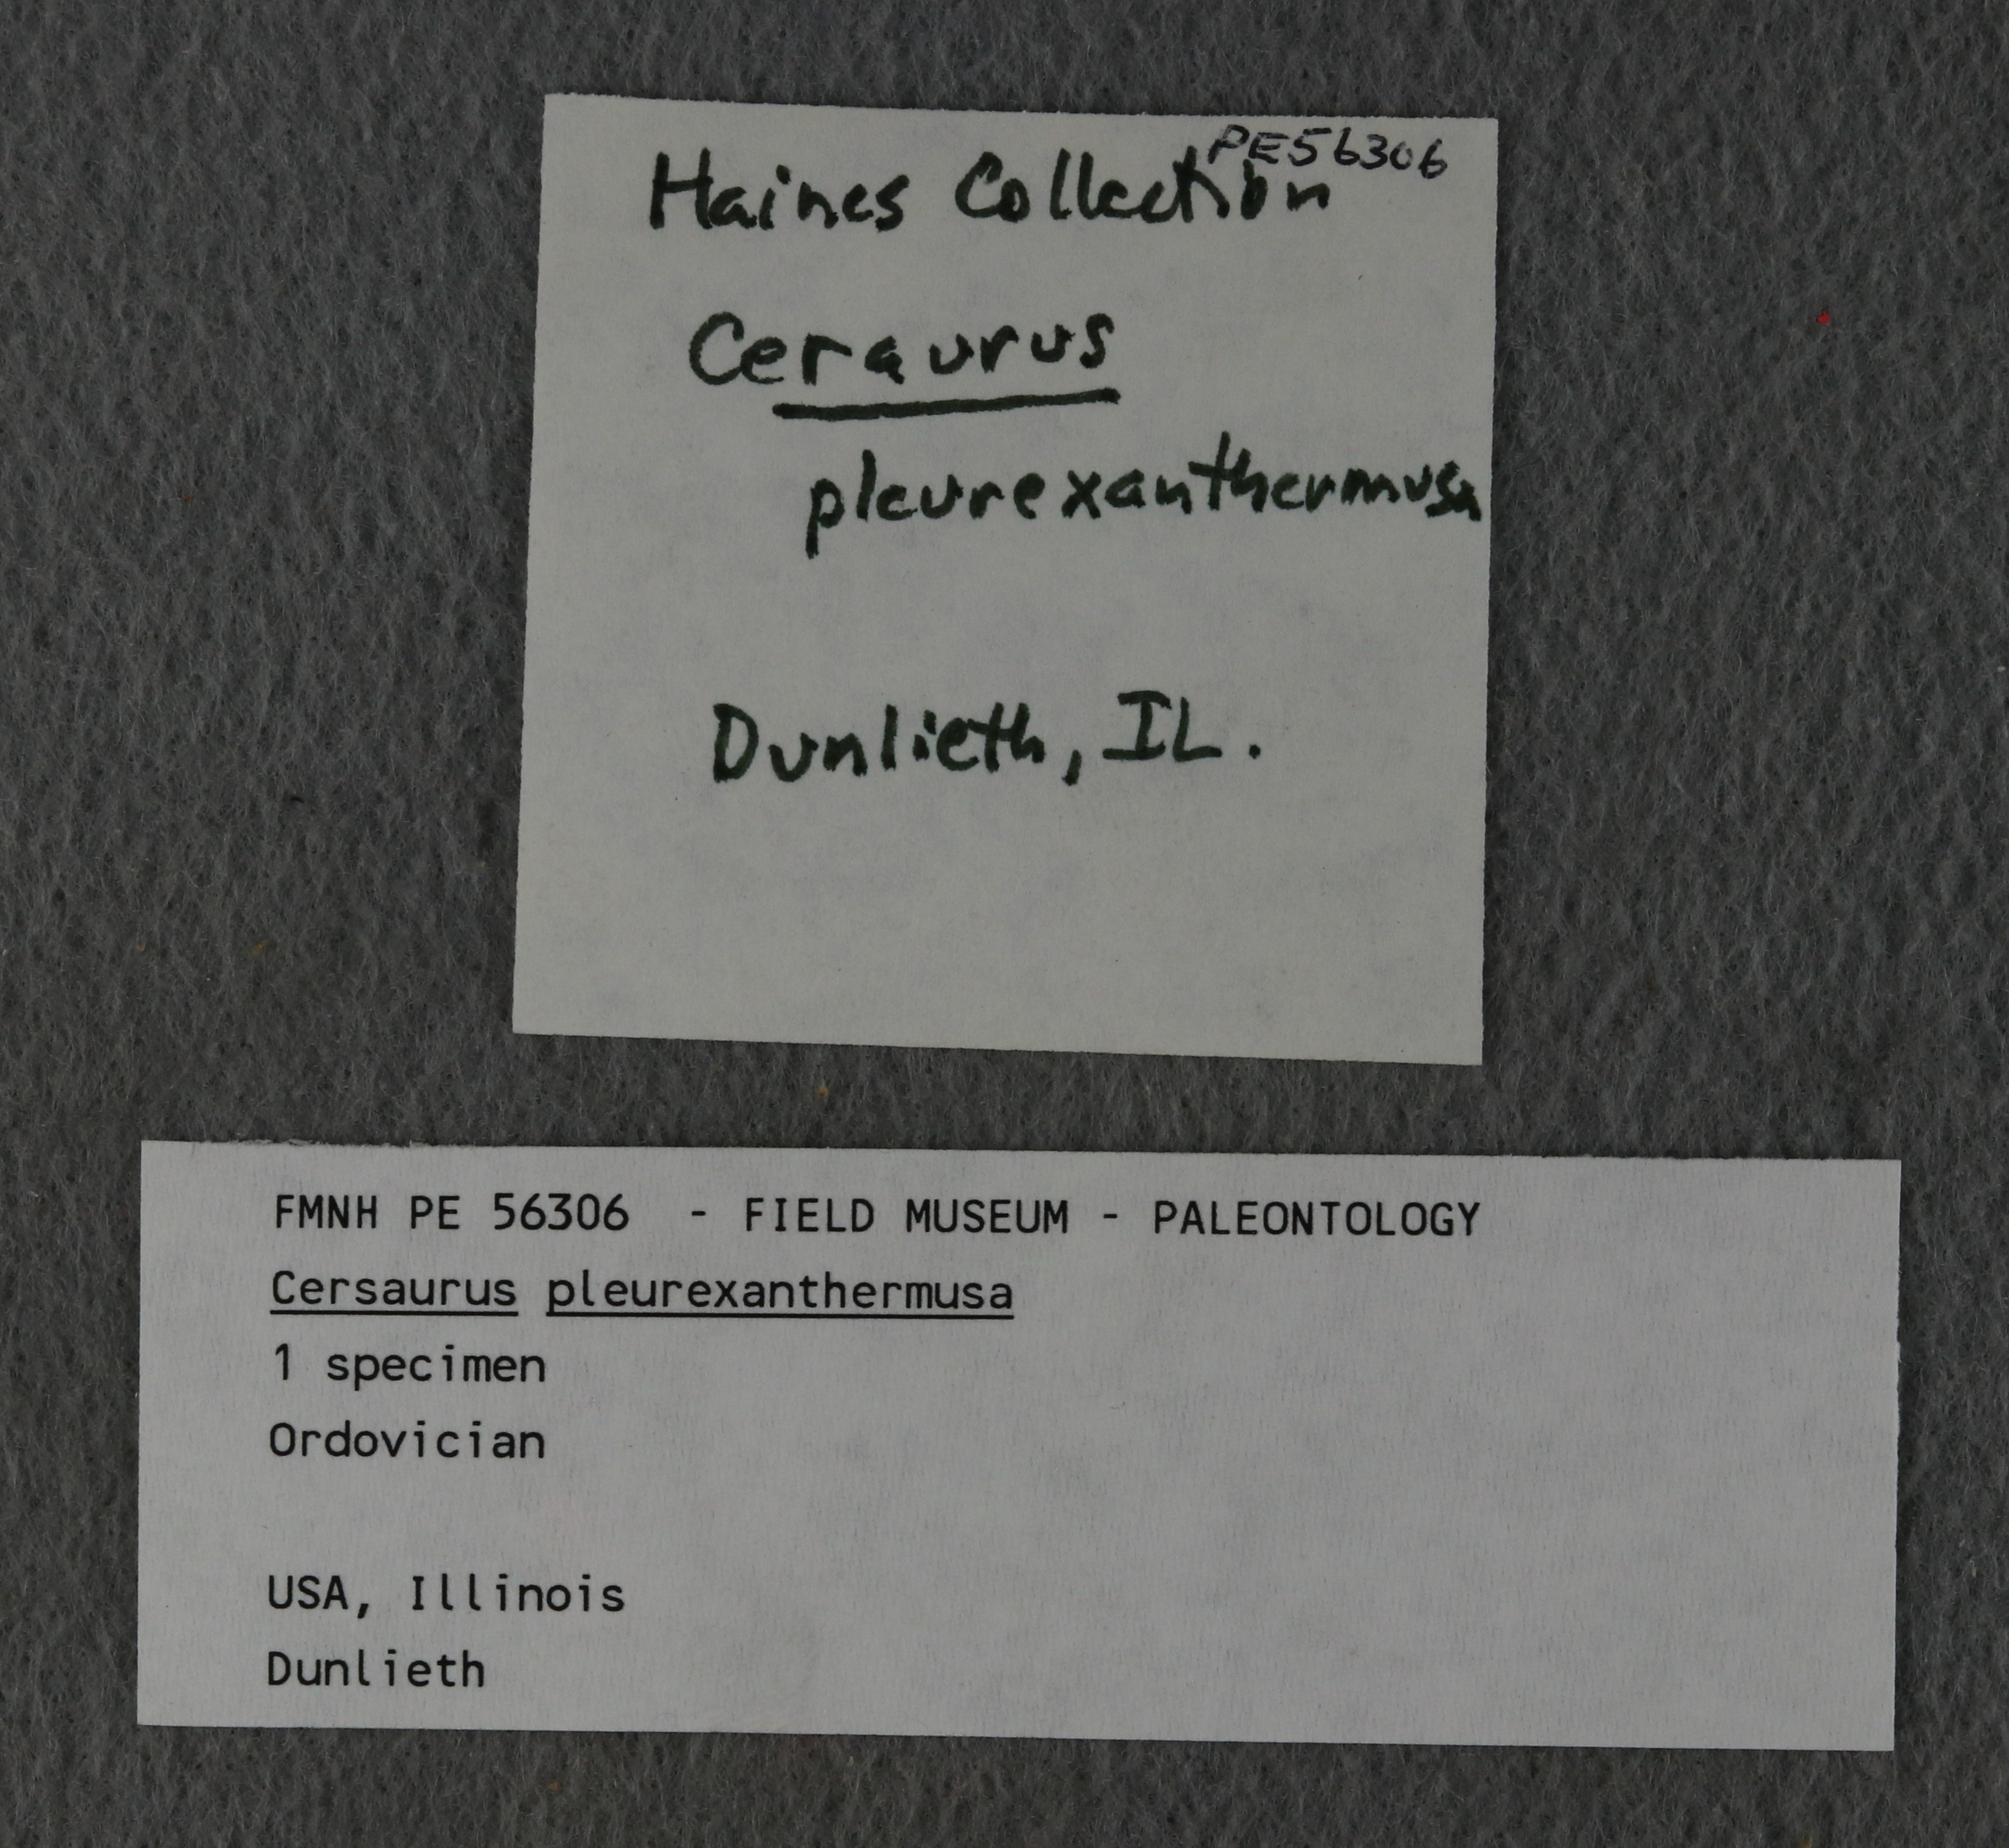 PE56306
Haines Collection
Ceraurus
pleurexanthermusa
Dunlieth, IL.
FMNH PE 56306 - FIELD MUSEUM - PALEONTOLOGY
Cersaurus pleurexanthermusa
1 specimen
Ordovician
USA, Illinois
Dunlieth